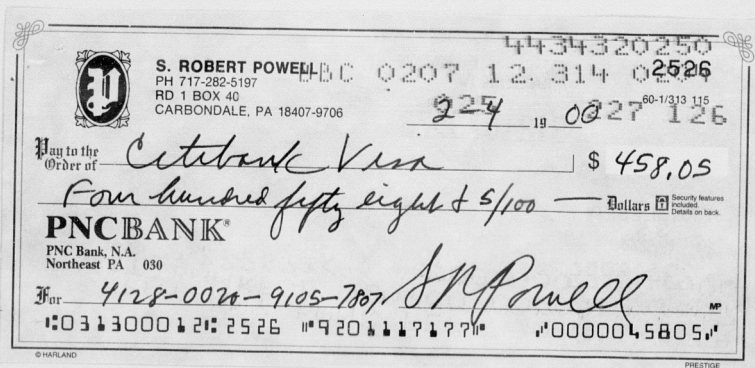 4434320250
S. ROBERT POWELL
BC 0207 12 314 02
2526
PH 717-282-5197
RD 1 BOX 40
CARBONDALE, PA 18407-9706
2-4 19 00
60-1/313 115
227 126
Pay to the Order of Citibank Visa $ 458.05
Four hundred fifty eight & 5/100 Dollars
Security features included. Details on back.
PNCBANK
PNC Bank, N.A.
Northeast PA 030
For 4128-0020-9105-7807 S R Powell
MP
031300012 2526 9201117177 0000045805
© HARLAND
PRESTIGE